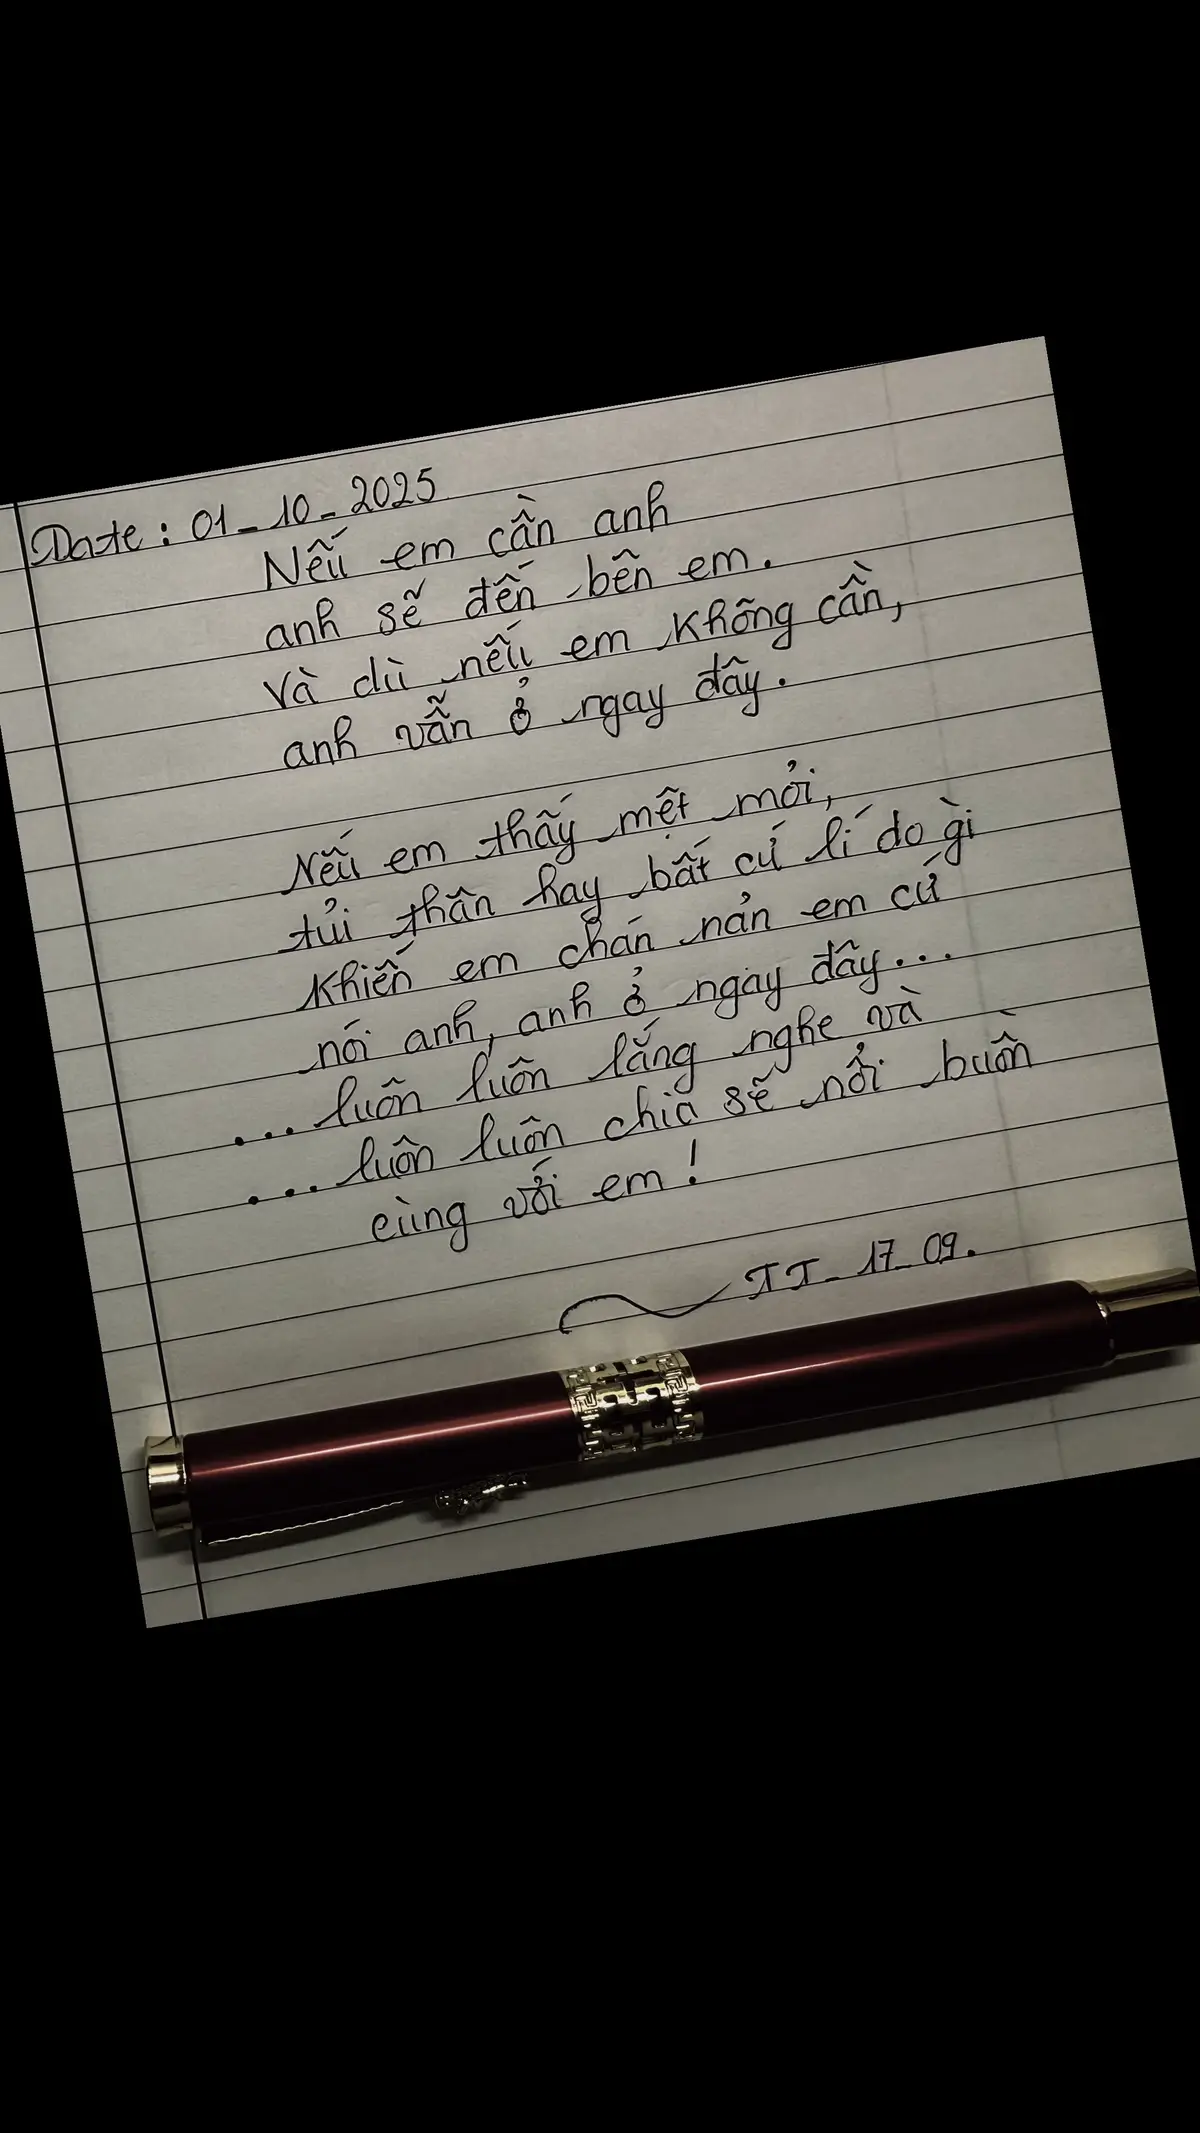 Date : 01_10_2025
Nếu em cần anh
anh sẽ đến bên em.
và dù nếu em không cần,
anh vẫn ở ngay đây.
Nếu em thấy mệt mỏi,
tủi thân hay bất cứ lí do gì
khiến em chán nản em cứ
nói anh, anh ở ngay đây...
...luôn luôn lắng nghe và
...luôn luôn chia sẽ nổi buồn
cùng với em!
TT_17_09.